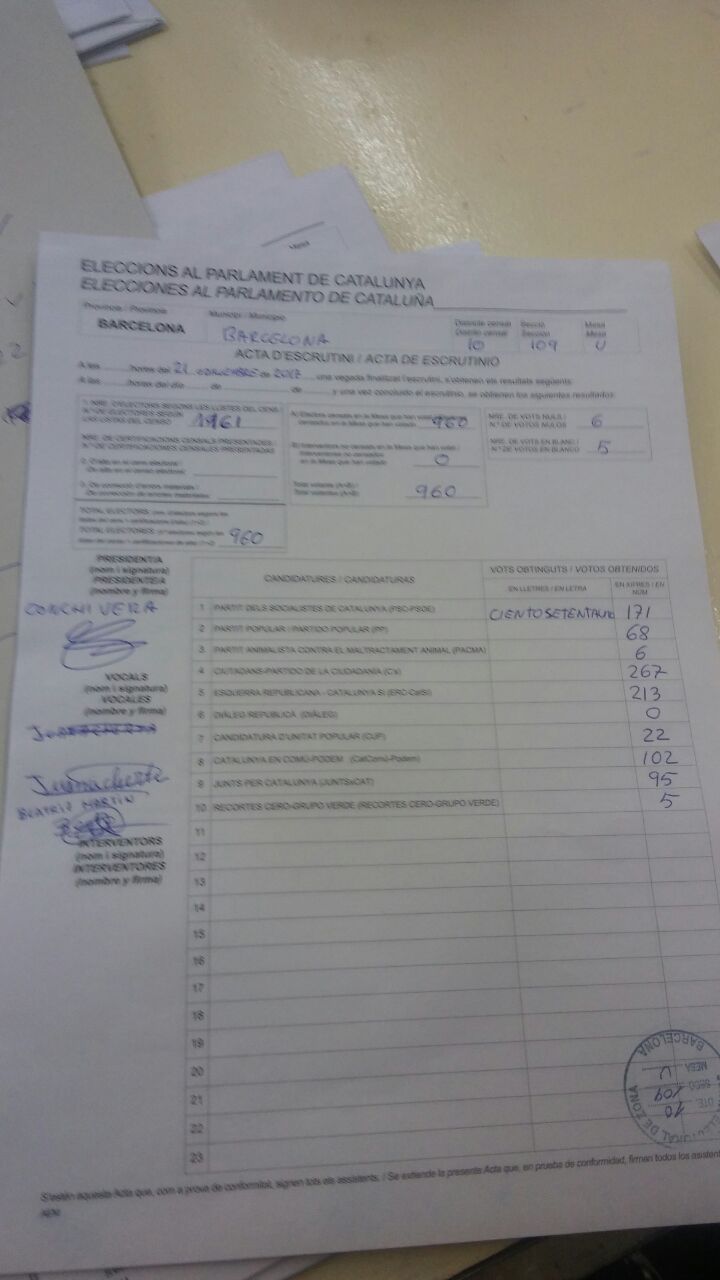 ELECCIONS AL PARLAMENT DE CATALUNYA
ELECCIONES AL PARLAMENTO DE CATALUÑA
Província / Provincia
Municipi / Municipio
Districte censal
Distrito censal
Secció
Sección
Mesa
Mesa
BARCELONA
BARCELONA
10
109
U
ACTA D'ESCRUTINI / ACTA DE ESCRUTINIO
A les horas del 21 de 2017 una vegada finalitzat l'escrutini, s'obtenen els resultats següents
A las horas del día de de y una vez concluido el escrutinio, se obtienen los siguientes resultados
1. NRE. D'ELECTORS SEGONS LES LLISTES DEL CENS
N.º DE ELECTORES SEGÚN
LAS LISTAS DEL CENSO
1961
NRE. DE CERTIFICACIONS CENSALS PRESENTADES
N.º DE CERTIFICACIONES CENSALES PRESENTADAS
A) Electors censats en la Mesa que han votat
censados en la Mesa que han votado
960
en la Mesa que han votado
0
Total votants (A+B) /
Total votantes (A+B)
960
NRE. DE VOTS NULS /
N.º DE VOTOS NULOS
6
NRE. DE VOTS EN BLANC /
N.º DE VOTOS EN BLANCO
5
TOTAL ELECTORS
TOTAL ELECTORES
960
PRESIDENT/A
(nom i signatura)
PRESIDENTE/A
(nombre y firma)
CONCHI VERA
VOCALS
(nom i signatura)
VOCALES
(nombre y firma)
BEATRIZ MARTIN
INTERVENTORS
(nom i signatura)
INTERVENTORES
(nombre y firma)
CANDIDATURES / CANDIDATURAS
VOTS OBTINGUTS / VOTOS OBTENIDOS
EN LLETRES / EN LETRA
EN XIFRES / EN NÚM
1 PARTIT DELS SOCIALISTES DE CATALUNYA (PSC-PSOE) CIENTO SETENTA UNO 171
2 PARTIT POPULAR / PARTIDO POPULAR (PP) 68
3 PARTIT ANIMALISTA CONTRA EL MALTRACTAMENT ANIMAL (PACMA) 6
4 CIUTADANS-PARTIDO DE LA CIUDADANÍA (C's) 267
5 ESQUERRA REPUBLICANA - CATALUNYA SÍ (ERC-CatSí) 213
6 DIÀLEG REPUBLICÀ (DIÀLEG) 0
7 CANDIDATURA D'UNITAT POPULAR (CUP) 22
8 CATALUNYA EN COMÚ-PODEM (CatComú-Podem) 102
9 JUNTS PER CATALUNYA (JUNTSxCAT) 95
10 RECORTES CERO-GRUPO VERDE (RECORTES CERO-GRUPO VERDE) 5
11
12
13
14
15
16
17
18
19
20
21
22
23
BARCELONA
MESA U
SECC 109
DTE. 10
DE ZONA
S'estén aquesta Acta que, com a prova de conformitat, signen tots els assistents. / Se extiende la presente Acta que, en prueba de conformidad, firman todos los